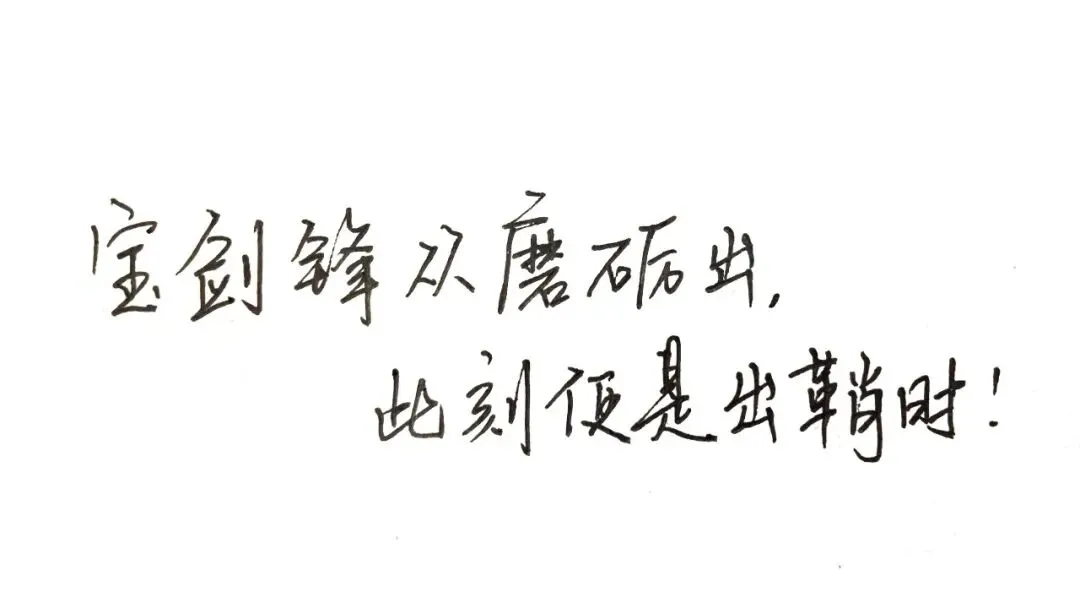 宝剑锋从磨砺出,
此刻便是出鞘时!